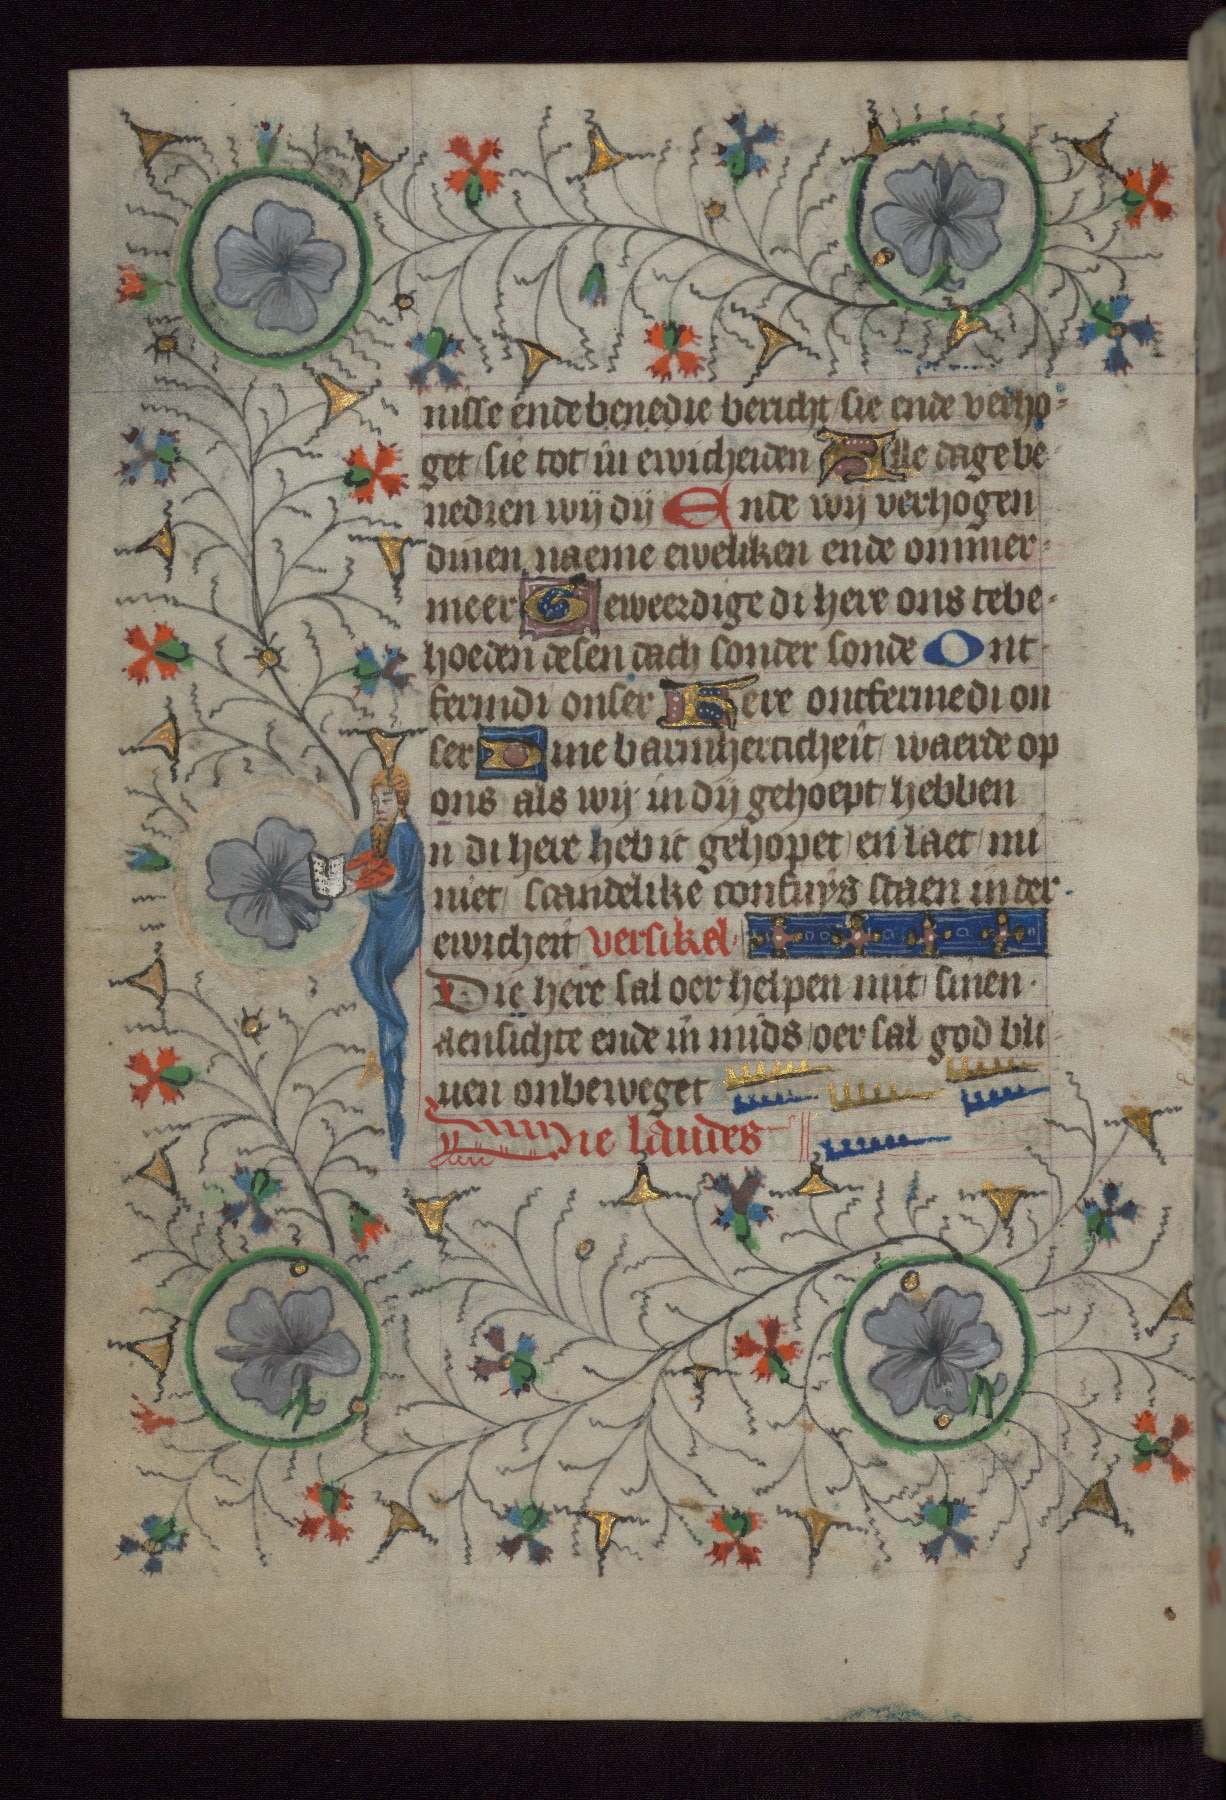 nisse ende benedie bericht sie ende verho-
get sie tot in ewicheiden Alle dage be
nedien wij dij Ende wij verhogen
dinen naeme eweliken ende ommer-
meer Geweerdige di here ons tebe-
hoeden desen dach sonder sonde Ont-
fermdi onser Here ontfermedi on
ser Dine barmherticheit waerde op
ons als wij in dij gehoept hebben
n di here heb ic gehopet en laet mi
niet scandelike confuys staen in der
ewicheit versikel
Die here sal oer helpen mit sinen
aensichte ende in mids oer sal god bli
uen onbeweget
Die laudes